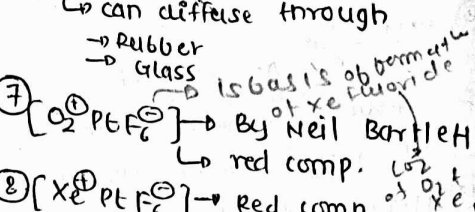 ↳ can diffuse through
→ Rubber
→ Glass
→ is basis of formatn
of xe fluoride
⑦ [O₂⊕ PtF₆⊖] → By Neil Bartlett
↳ red comp.
⑧ [Xe⊕ PtF₆⊖] → Red comp
of O₂⁺
xe